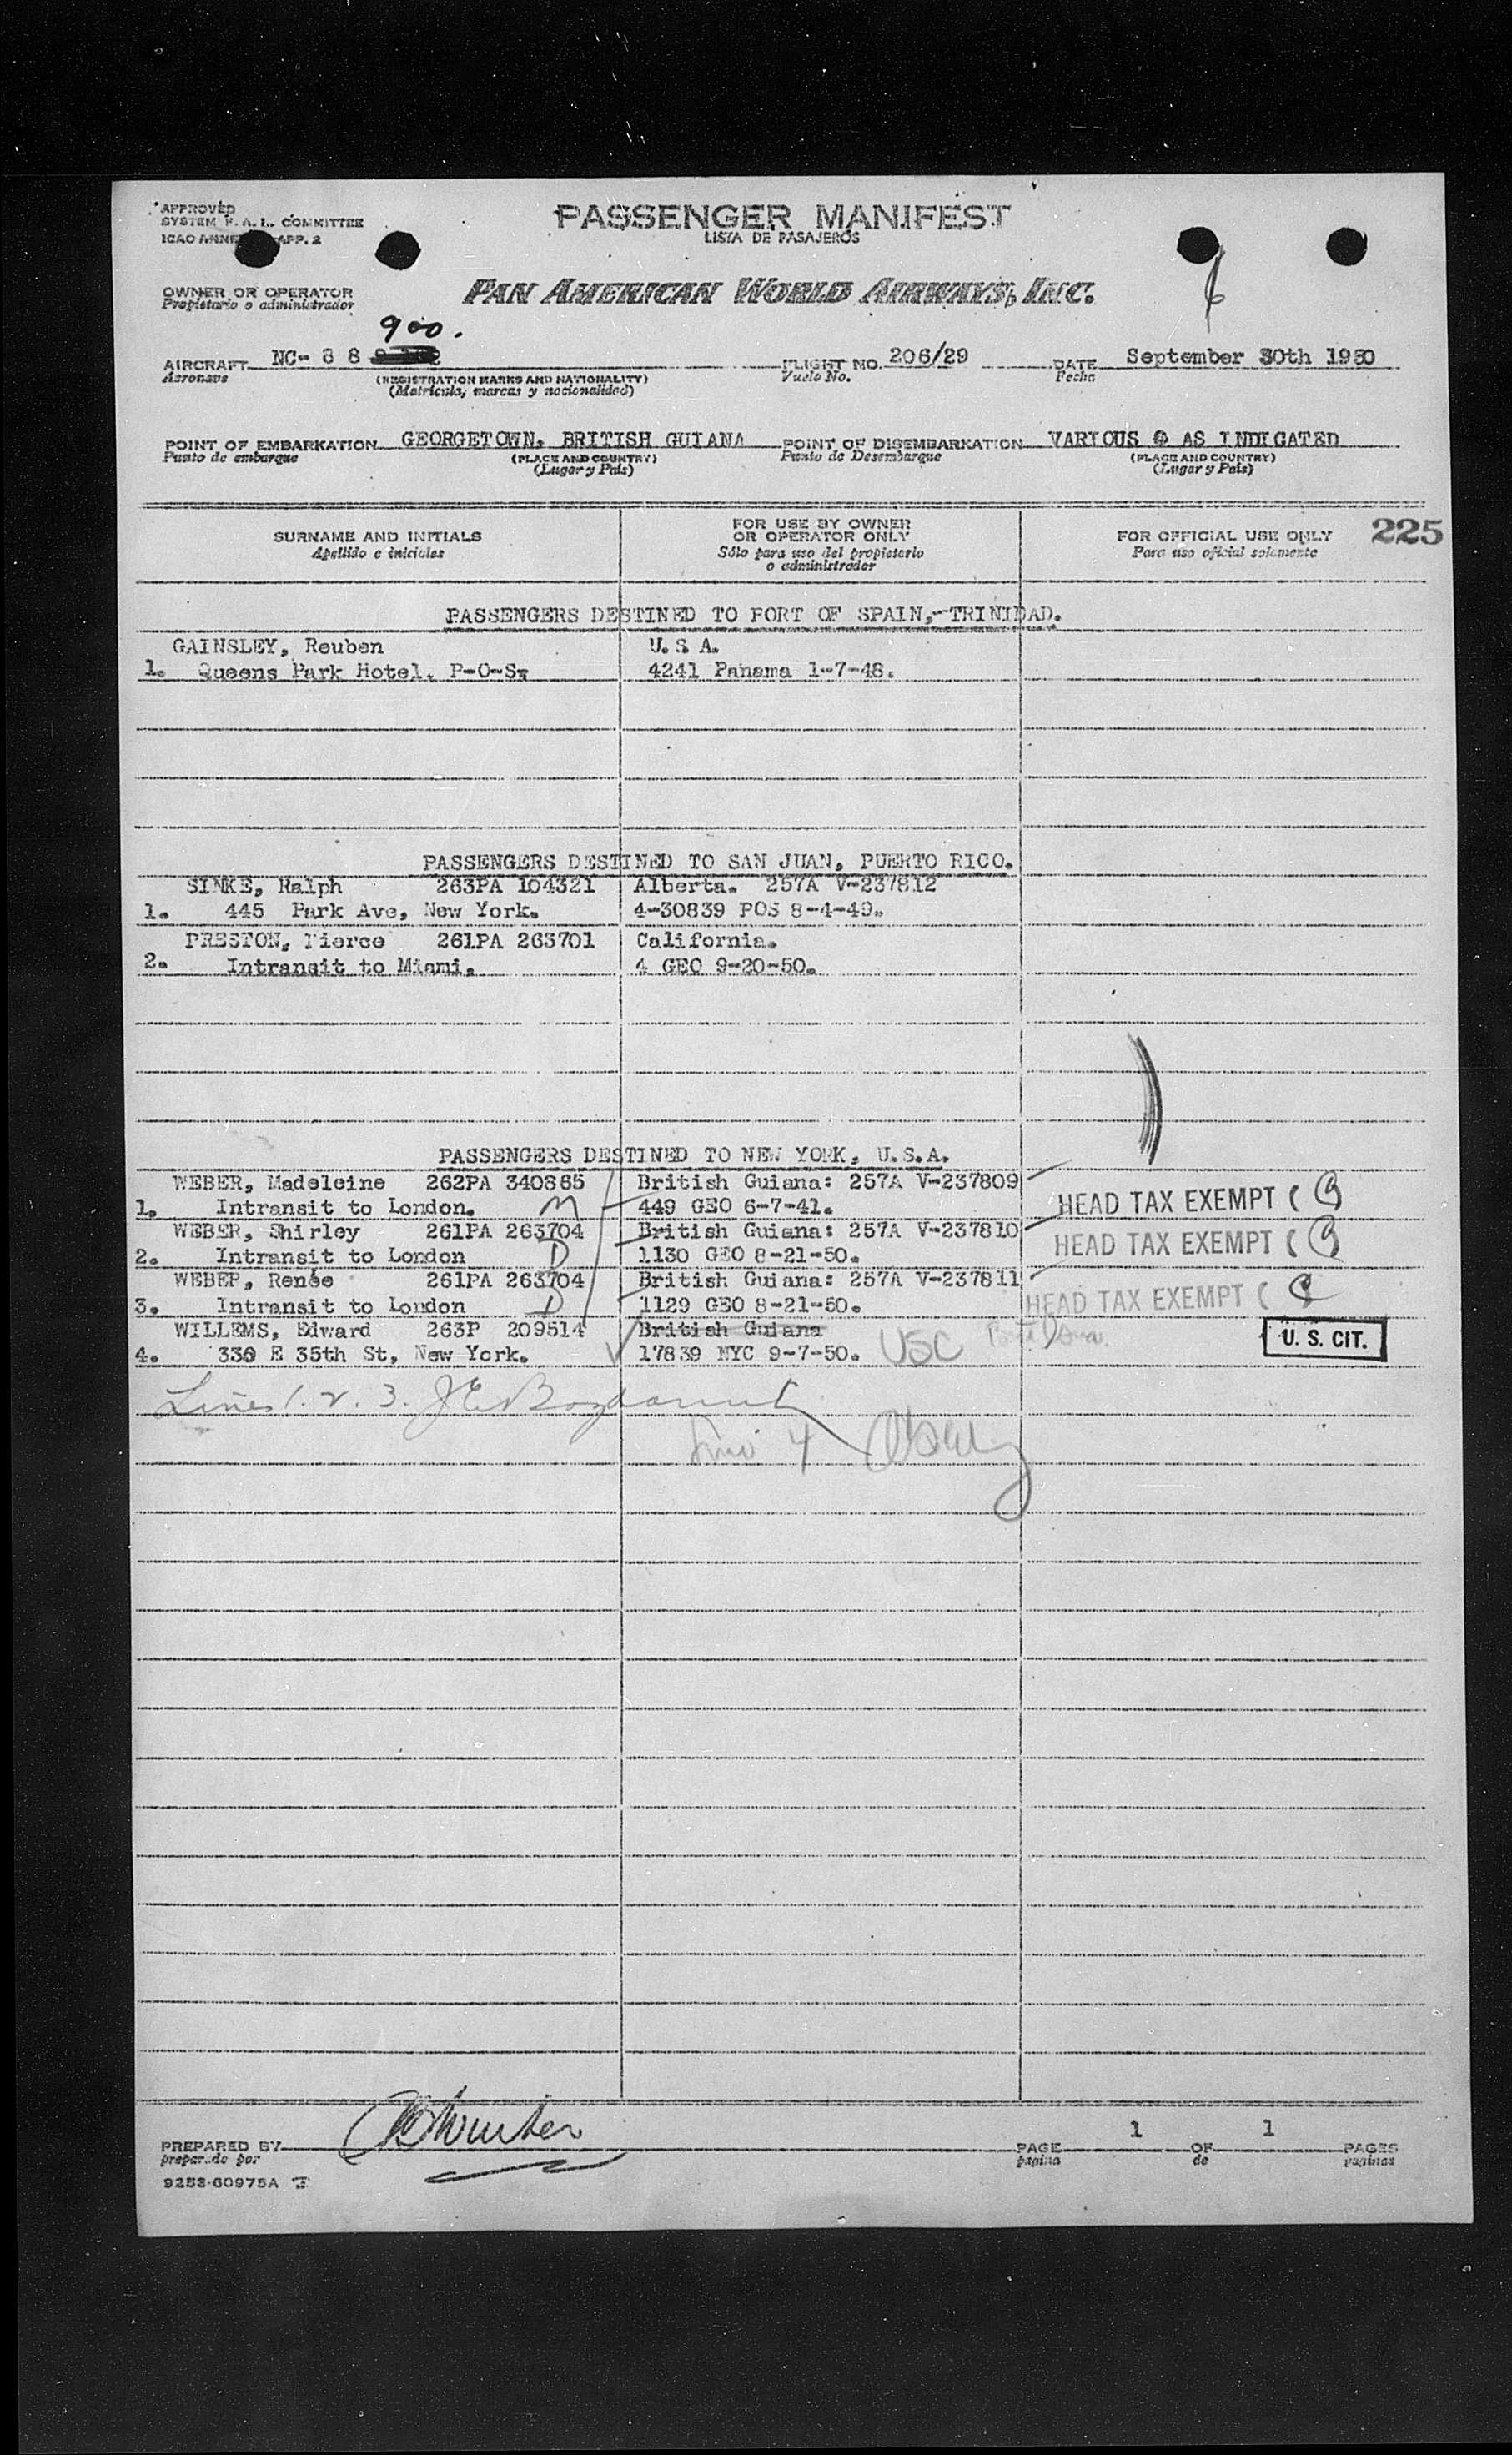 APPROVED
SYSTEM F. A. L. COMMITTEE
ICAO APP. 2
PASSENGER MANIFEST
LISTA DE PASAJEROS
OWNER OR OPERATOR
Propietario o administrador
PAN AMERICAN WORLD AIRWAYS, INC.
900.
AIRCRAFT NC- 88 FLIGHT NO. 206/29 DATE September 30th 1950
Aeronave (REGISTRATION MARKS AND NATIONALITY) Vuelo No. Fecha
(Matrícula, marcas y nacionalidad)
POINT OF EMBARKATION GEORGETOWN, BRITISH GUIANA POINT OF DISEMBARKATION VARIOUS @ AS INDICATED
Punto de embarque (PLACE AND COUNTRY) Punto de Desembarque (PLACE AND COUNTRY)
(Lugar y País) (Lugar y País)
SURNAME AND INITIALS FOR USE BY OWNER OR OPERATOR ONLY FOR OFFICIAL USE ONLY 225
Apellido e iniciales Sólo para uso del propietario o administrador Para uso oficial solamente
PASSENGERS DESTINED TO PORT OF SPAIN,-TRINIDAD.
GAINSLEY, Reuben U.S.A.
1. Queens Park Hotel. P-O-S. 4241 Panama 1-7-48.
PASSENGERS DESTINED TO SAN JUAN, PUERTO RICO.
SINKE, Ralph 263PA 104321 Alberta. 257A V-237812
1. 445 Park Ave, New York. 4-30839 POS 8-4-49.
PRESTON, Pierce 261PA 263701 California.
2. Intransit to Miami. 4 GEO 9-20-50.
PASSENGERS DESTINED TO NEW YORK, U.S.A.
WEBER, Madeleine 262PA 340865 British Guiana: 257A V-237809
1. Intransit to London. M 449 GEO 6-7-41. HEAD TAX EXEMPT (
WEBER, Shirley 261PA 263704 British Guiana: 257A V-237810
2. Intransit to London D 1130 GEO 8-21-50. HEAD TAX EXEMPT (
WEBER, Renée 261PA 263704 British Guiana: 257A V-237811
3. Intransit to London D 1129 GEO 8-21-50. HEAD TAX EXEMPT (
WILLEMS, Edward 263P 209514 British Guiana
4. 330 E 35th St, New York. 17839 NYC 9-7-50. USC U. S. CIT.
Lines 1. 2. 3.
Line 4
PREPARED BY PAGE 1 OF 1 PAGES
preparado por página de páginas
9253-60975A